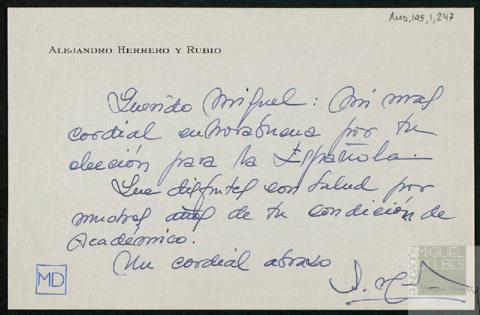 AMD,195,1,247
ALEJANDRO HERRERO Y RUBIO
Querido Miguel: Mi mas
cordial enhorabuena por tu
elección para la Española.
Que disfrutes con salud por
muchos años de tu condición de
Académico.
Un cordial abrazo
MD
FUNDACIÓN
MIGUEL
DELIBES